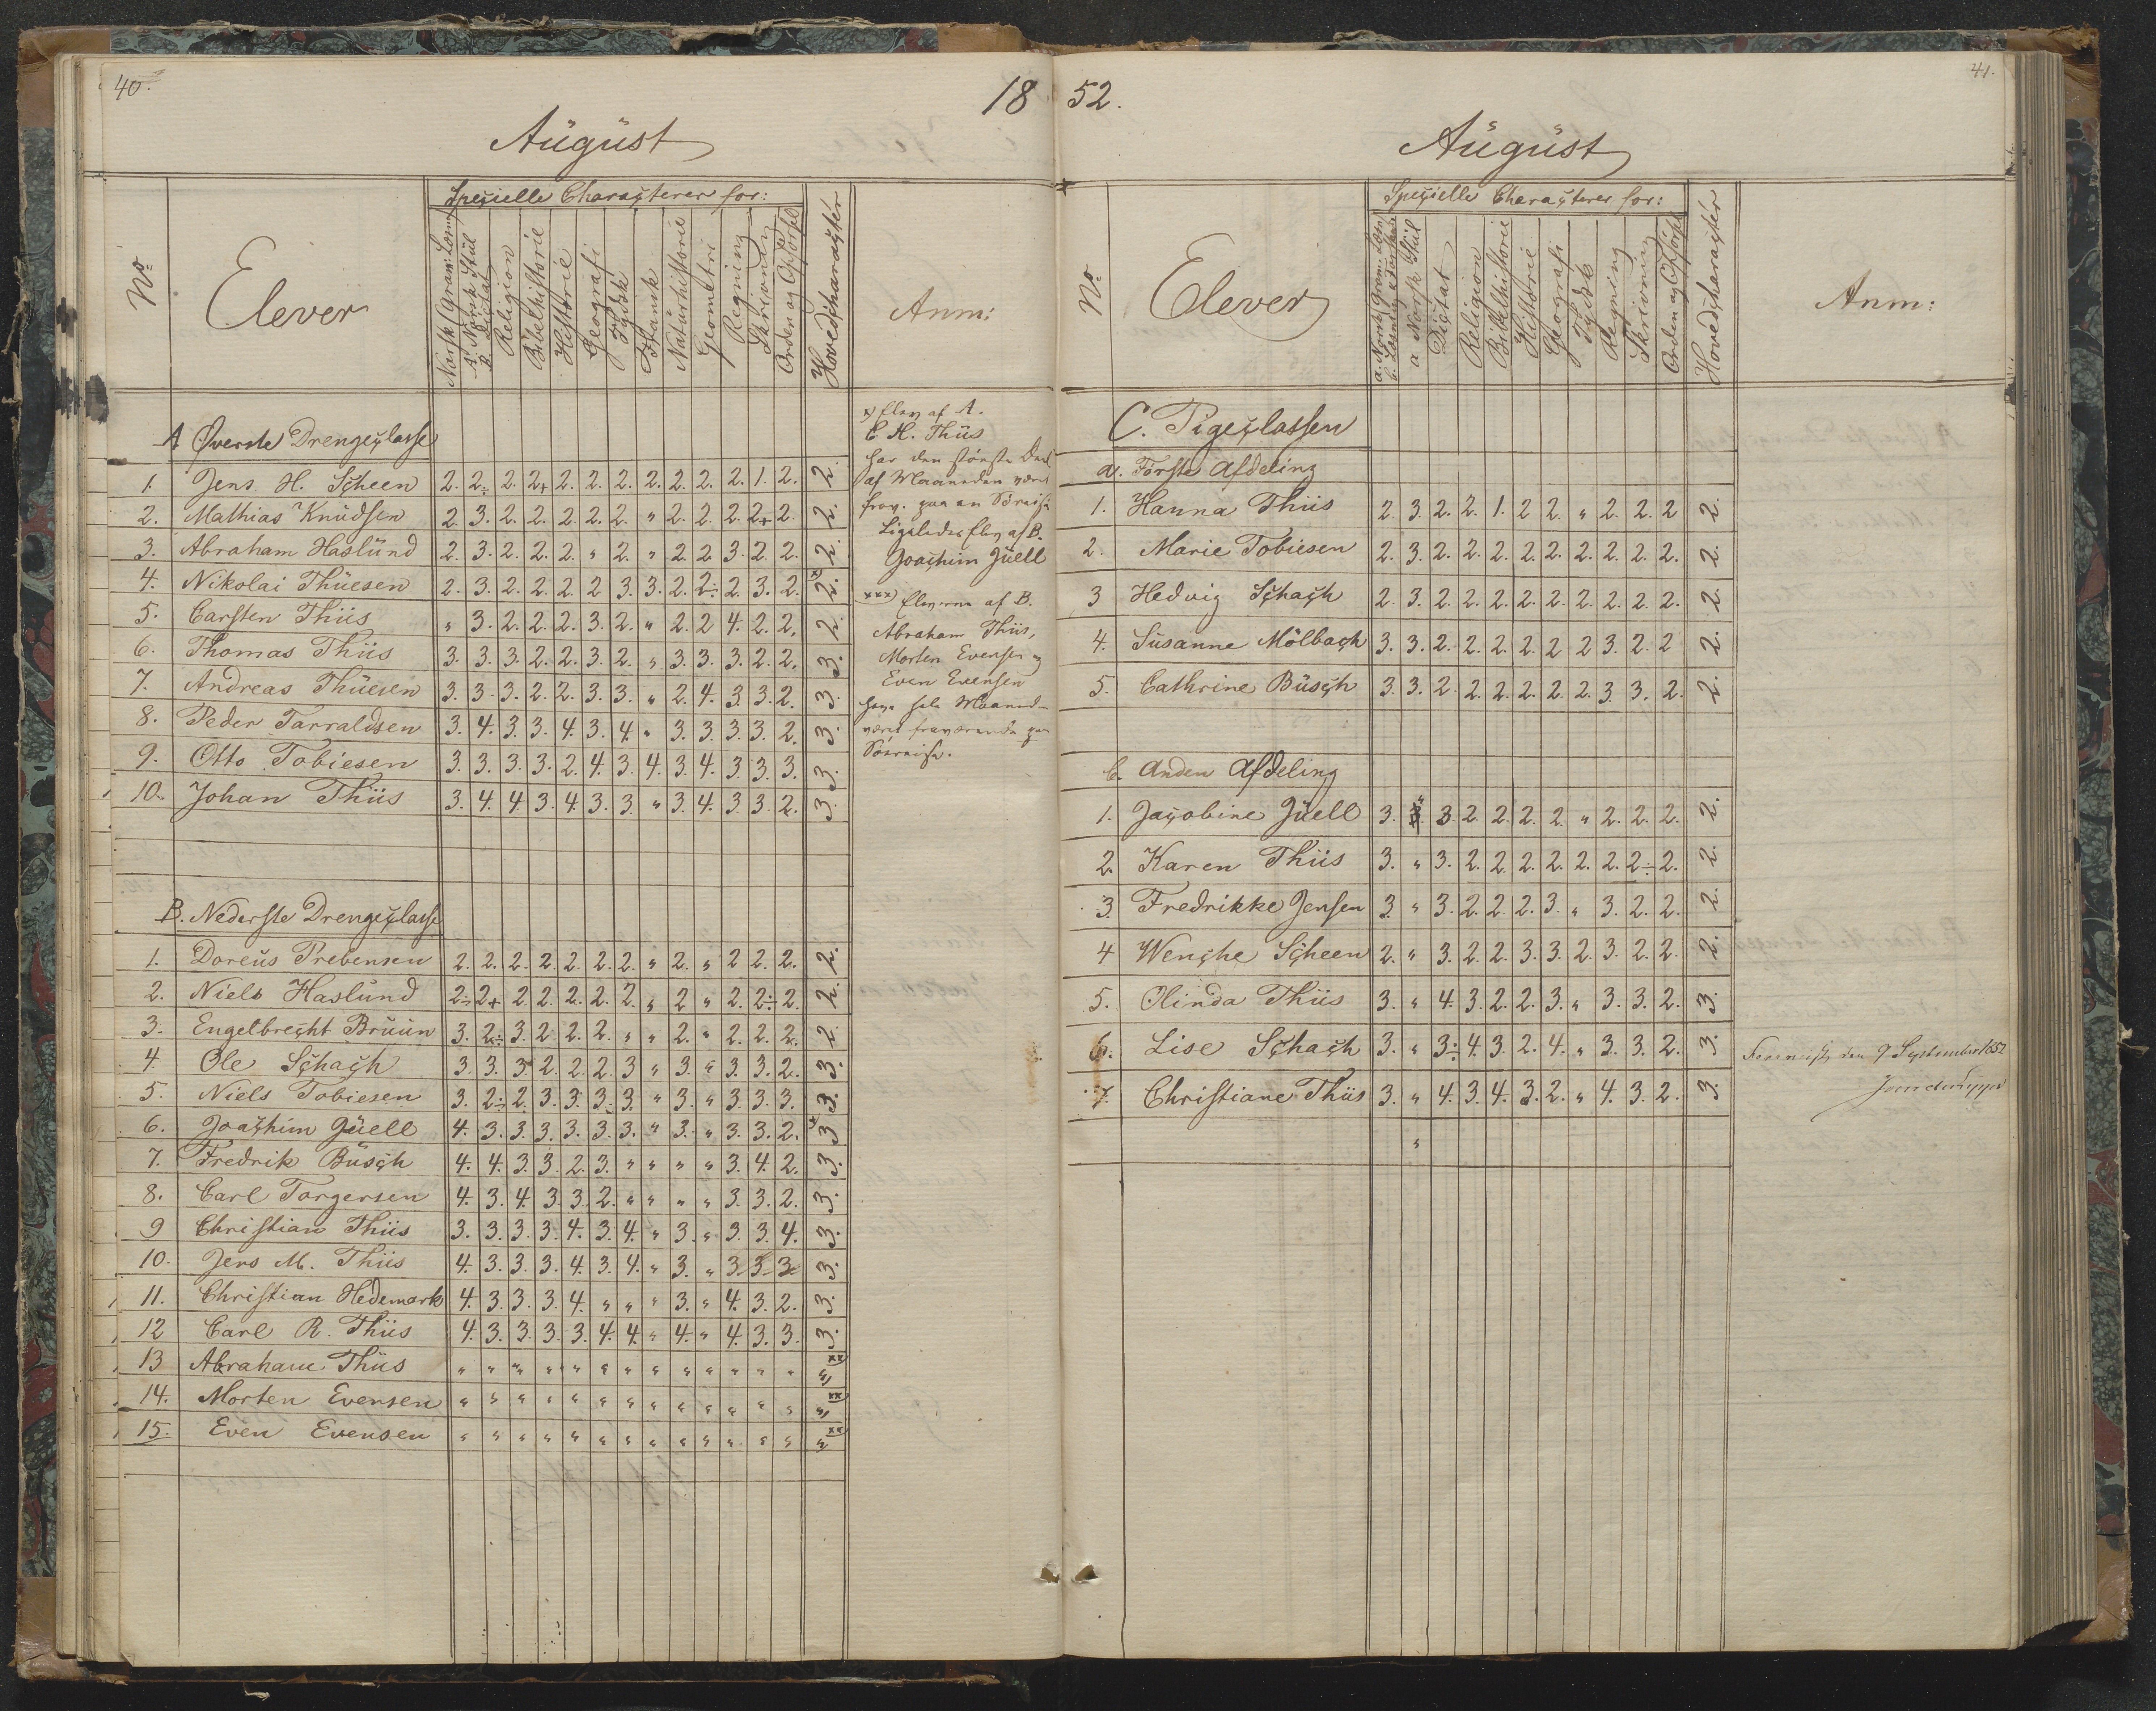 40.
18
August
Speçielle Charaçterer for:
No
Elever
Norsk Gram: Læsn
A. Norsk Stül
B. Diçtat
Religion
Bibelhistorie
Historie
Geografi
Tydsk
Fransk
Naturhistorie
Geometri
Regning
Skrivning
Orden og Opførsel
Hovedçharaçtér
Anm:
A Øverste Drengeçlasse
1. Jens H. Sçheen 2. 2÷ 2. 2+ 2. 2. 2. 2. 2. 2. 2. 1. 2. 2.
2. Mathias Knudsen 2. 3. 2. 2. 2. 2. 2. " 2. 2. 2. 2+ 2. 2.
3. Abraham Haslund 2. 3. 2. 2. 2. " 2. " 2 2 3. 2. 2. 2.
4. Nikolai Thuesen 2. 3. 2. 2. 2. 2 3. 3. 2. 2÷ 2. 3. 2. 2. x)
5. Carsten Thiis " 3. 2. 2. 2. 3. 2. " 2. 2 4. 2. 2. 2.
6. Thomas Thiis 3. 3. 3. 2. 2. 3. 2. " 3. 3. 3. 2. 2. 3.
7. Andreas Thuesen 3. 3. 3. 2. 2. 3. 3. " 2. 4. 3. 3. 2. 3.
8. Peder Tarraldsen 3. 4. 3. 3. 4. 3. 4. " 3. 3. 3. 3. 2. 3.
9. Otto Tobiesen 3. 3. 3. 3. 2. 4. 3. 4. 3. 4. 3. 3. 3. 3.
10. Johan Thiis 3. 4. 4. 3. 4. 3. 3 " 3. 4. 3. 3. 2. 3.
x) Elev af A.
C. H. Thiis
har den största Deel
af Maaneden været
frav. paa en Söreise
Ligeledes Elev af B.
Joaçhim Juell
xxx) Eleverne af B.
Abraham Thiis,
Morten Evensen og
Even Evensen
have hele Maaned-
været fraværende paa
Söereise.
B. Nederste Drengeçlasse
1. Doreus Prebensen 2. 2. 2. 2. 2. 2. 2. " 2. " 2 2. 2. 2.
2. Niels Haslund 2÷ 2+ 2. 2. 2. 2. 2. " 2 " 2. 2÷ 2. 2.
3. Engelbreçht Bruun 3. 2÷ 3. 2. 2. 2. " " 2. " 2. 2. 2. 2.
4. Ole Sçhaçh 3. 3. 3 2. 2. 2. 3 " 3. " 3. 3. 2. 3.
5. Niels Tobiesen 3. 2÷ 2. 3. 3. 3. 3. " 3. " 3. 3. 3. 3.
6. Joaçhim Juell 4. 3. 3. 3. 3. 3. 3. " 3. " 3. 3. 2. 3 x)
7. Fredrik Busçh 4. 4. 3. 3. 2. 3. " " " " 3. 4. 2. 3.
8. Carl Torgersen 4. 3. 4. 3. 3. 2. " " " " 3. 3. 2. 3.
9 Christian Thiis 3. 3. 3. 3. 4. 3. 4. " 3. " 3. 3. 4. 3.
10. Jens M. Thiis 4. 3. 3. 3. 4. 3. 4. " 3. " 3. 3. 3. 3.
11. Christian Hedemark 4. 3. 3. 3. 4. " " " 3. " 4. 3. 2. 3.
12 Carl R. Thiis 4. 3. 3. 3. 3. 4. 4. " 4. " 4. 3. 3. 3.
13 Abraham Thiis " " " " " " " " " " " " " " xx)
14. Morten Evensen " " " " " " " " " " " " " " xx)
15. Even Evensen " " " " " " " " " " " " " " xx)
52.
41.
August
Speçielle Charaçterer for:
No
Elever
a. Norsk Gram: Læsn
a Norsk Stül
Diçtat
Religion
Bibelhistorie
Historie
Geografi
Tydsk
Regning
Skrivning
Orden og Opførsel
Hovedçharaçtér
Anm:
C. Pigeçlassen
a. Første Afdeling
1. Hanna Thiis 2. 3. 2. 2. 1. 2 2. " 2. 2. 2 2.
2. Marie Tobiesen 2. 3. 2. 2. 2. 2. 2. 2. 2. 2. 2. 2.
3 Hedvig Sçhaçh 2. 3. 2. 2. 2. 2. 2. 2. 2. 2. 2. 2.
4. Susanne Mölbaçh 3. 3. 2. 2. 2. 2. 2 2 3. 2. 2 2.
5. Cathrine Busçh 3. 3. 2. 2. 2. 2. 2. 2. 3. 3. 2. 2.
b. Anden Afdeling
1. Jaçobine Juell 3. " 3. 2 2. 2. 2. " 2. 2. 2. 2.
2. Karen Thiis 3. " 3. 2. 2. 2. 2. 2. 2. 2÷ 2. 2.
3. Fredrikke Jensen 3. " 3. 2. 2. 2. 3. " 3. 2. 2. 2.
4 Wençhe Sçheen 2. " 3. 2. 2. 3. 3. 2. 3. 2. 2. 2.
5. Olinda Thiis 3. " 4. 3. 2. 2. 3. " 3. 3. 2. 3.
6. Lise Sçhaçh 3. " 3÷ 4. 3. 2. 4. " 3. 3. 2. 3.
7. Christiane Thiis 3. " 4. 3. 4. 3. 2. " 4. 3. 2. 3.
"
den 9 September 1852